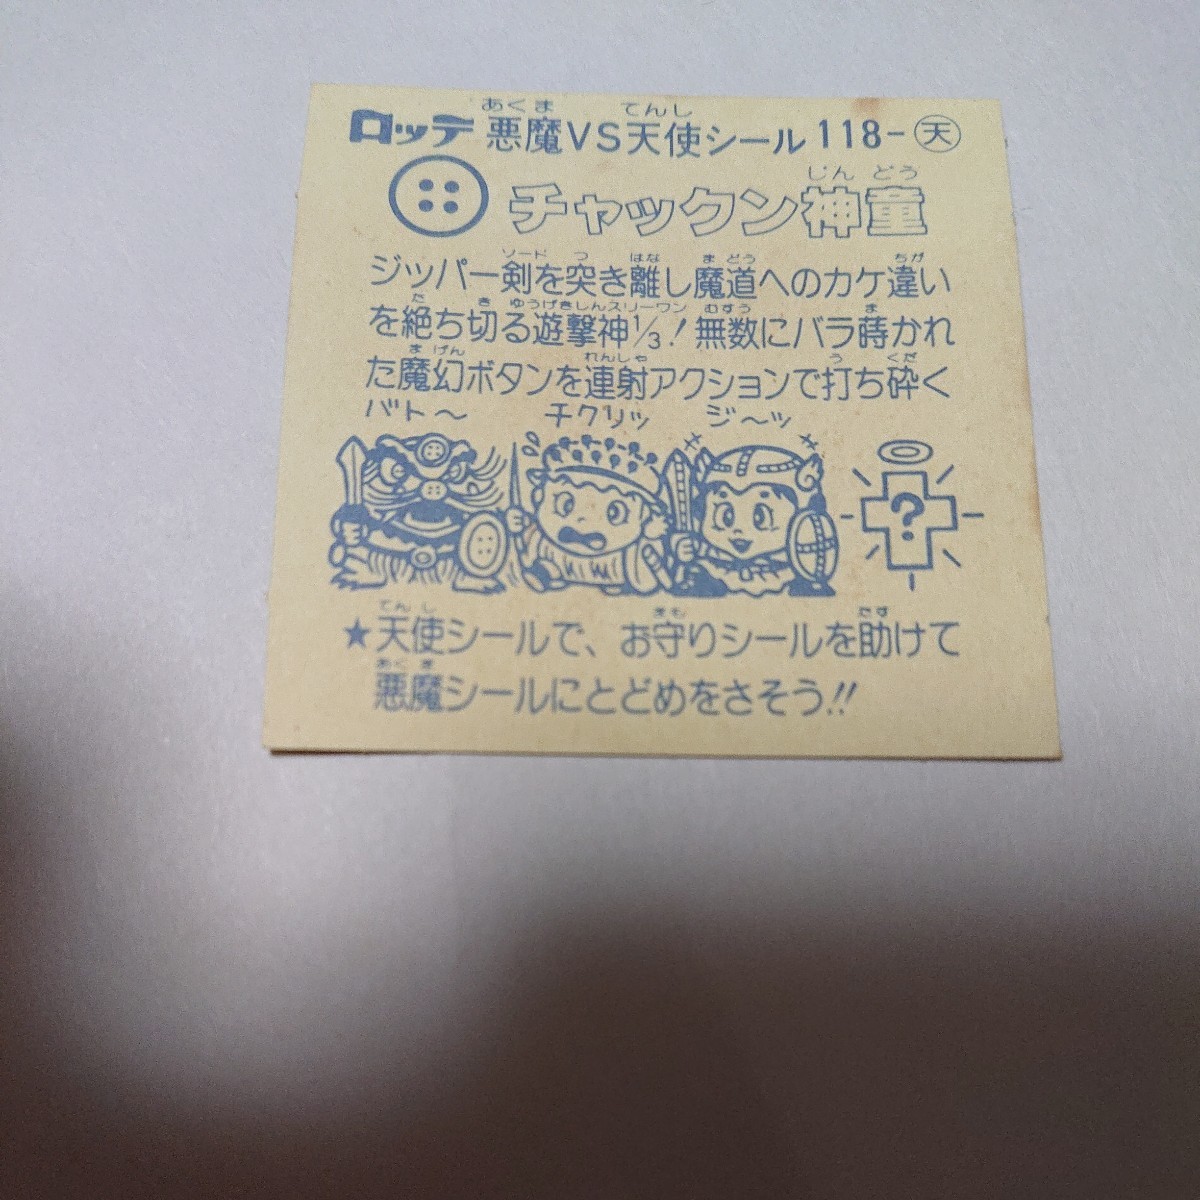 ロッテ 悪魔VS天使シール 118-天
チャックン神童
ジッパー剣を突き離し魔道へのカケ違い
を絶ち切る遊撃神1/3!無数にバラ蒔かれ
た魔幻ボタンを連射アクションで打ち砕く
バト〜 チクリッ ジ〜ッ
?
★天使シールで、お守りシールを助けて
悪魔シールにとどめをさそう!!